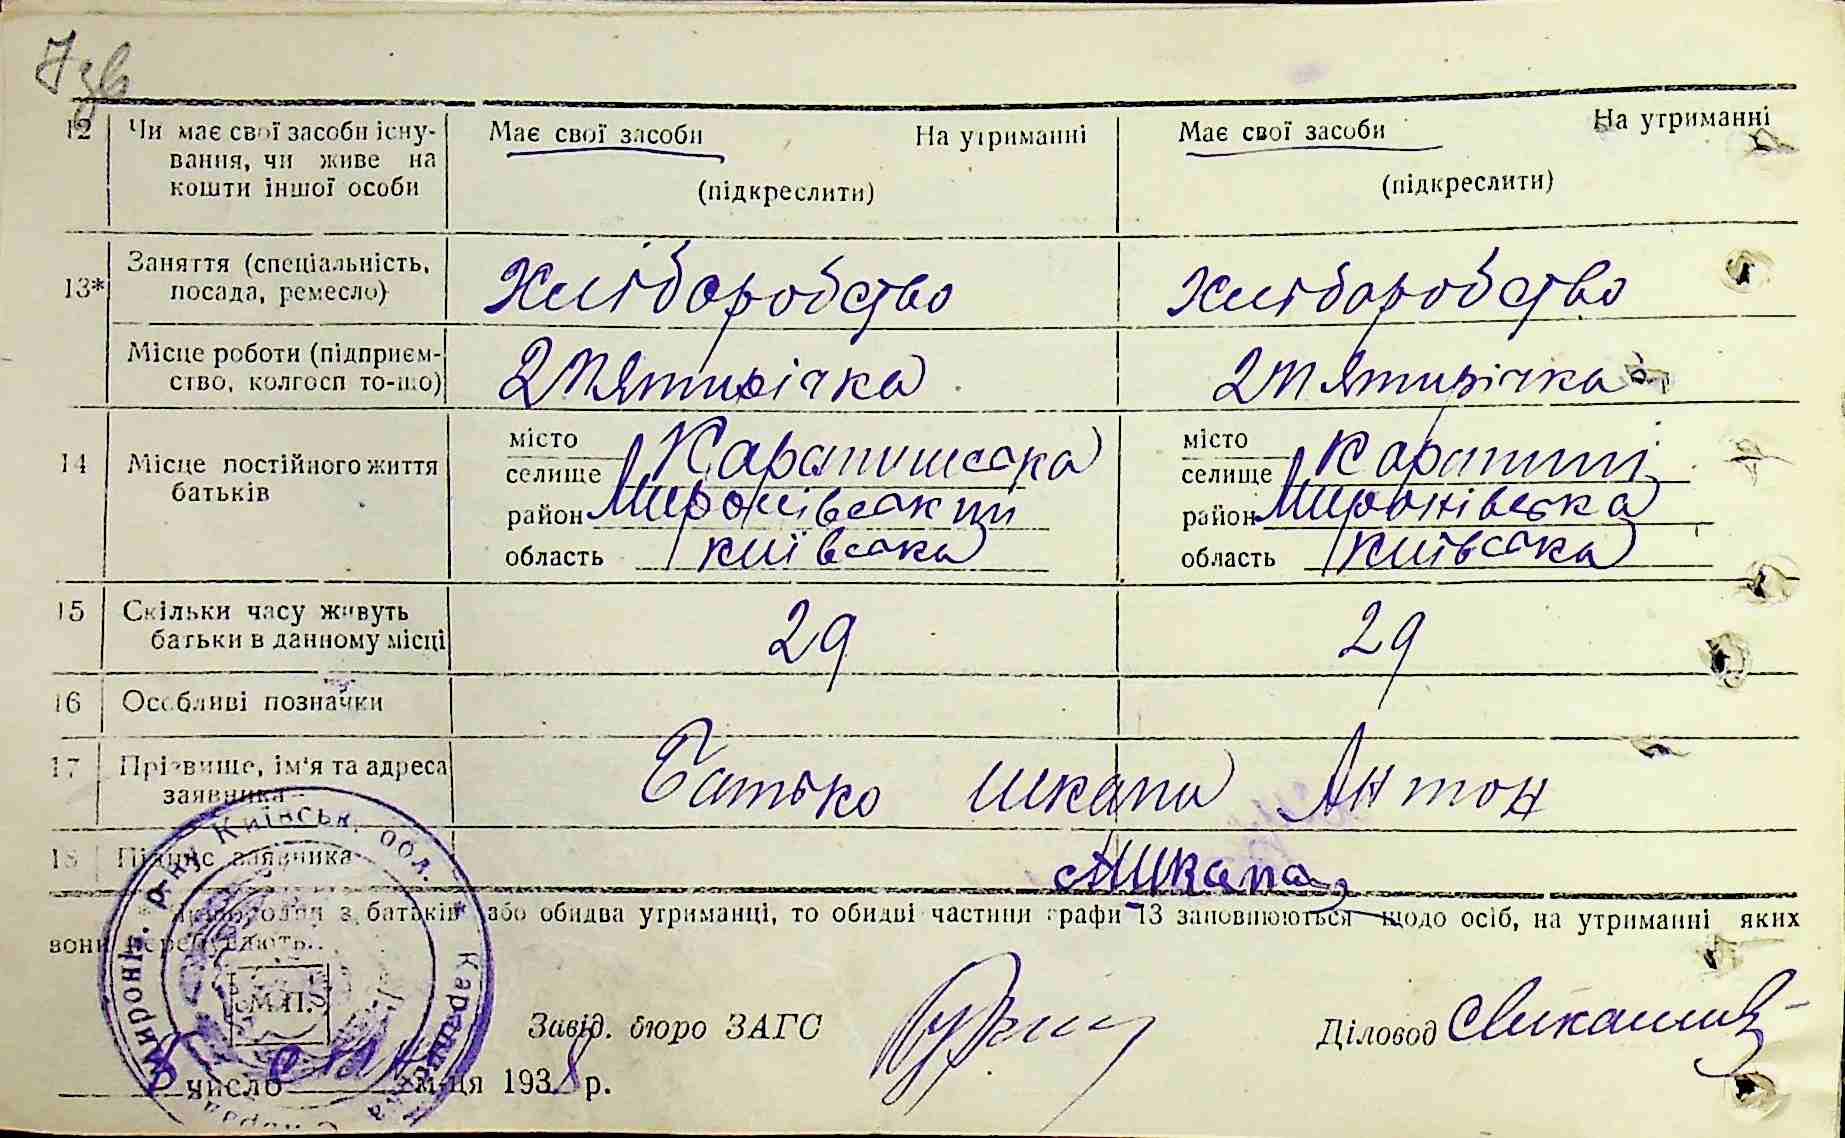 12 Чи має свої засоби існу- Має свої засоби На утриманні Має свої засоби На утриманні
вання, чи живе на
кошти іншої особи (підкреслити) (підкреслити)
Заняття (спеціальність,
13* посада, ремесло) Хліборобство Хліборобство
Місце роботи (підприєм-
ство, колгосп то-що) 2 П'ятирічка 2 П'ятирічка
14 Місце постійного життя
батьків
місто
селище Карапишська
район Миронівський
область Київська
місто
селище Карапиші
район Миронівська
область Київська
15 Скільки часу живуть
батьки в данному місці 29 29
16 Особливі позначки
17 Прізвище, ім'я та адреса
заявника Батько Шкапа Антон
18 Підпис заявника АШкапа
з батьків або обидва утриманці, то обидві частини графи 13 заповнюються щодо осіб, на утриманні яких
вони
М.П.
Завід. бюро ЗАГС
Діловод
число м-ця 1938 р.
Миронів. р-ну Київськ. обл.